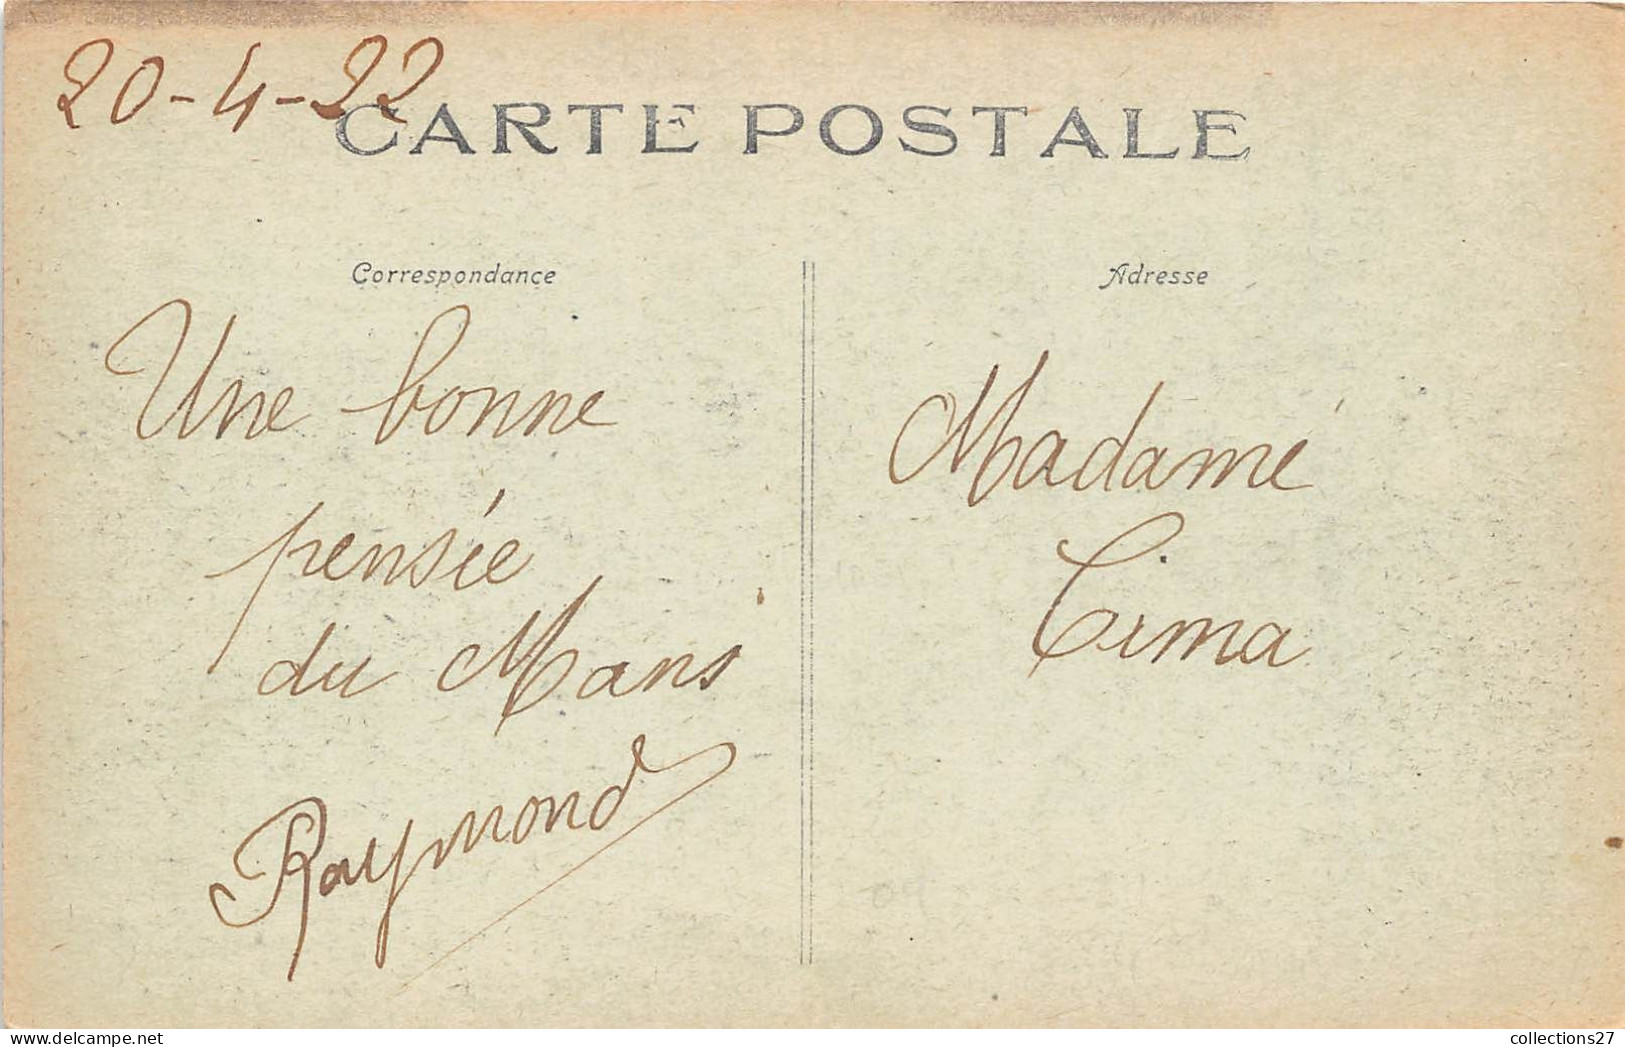 20-4-22
CARTE POSTALE
Correspondance
Une bonne
pensée
du Mans
Raymond
Adresse
Madame
Cima
collections27